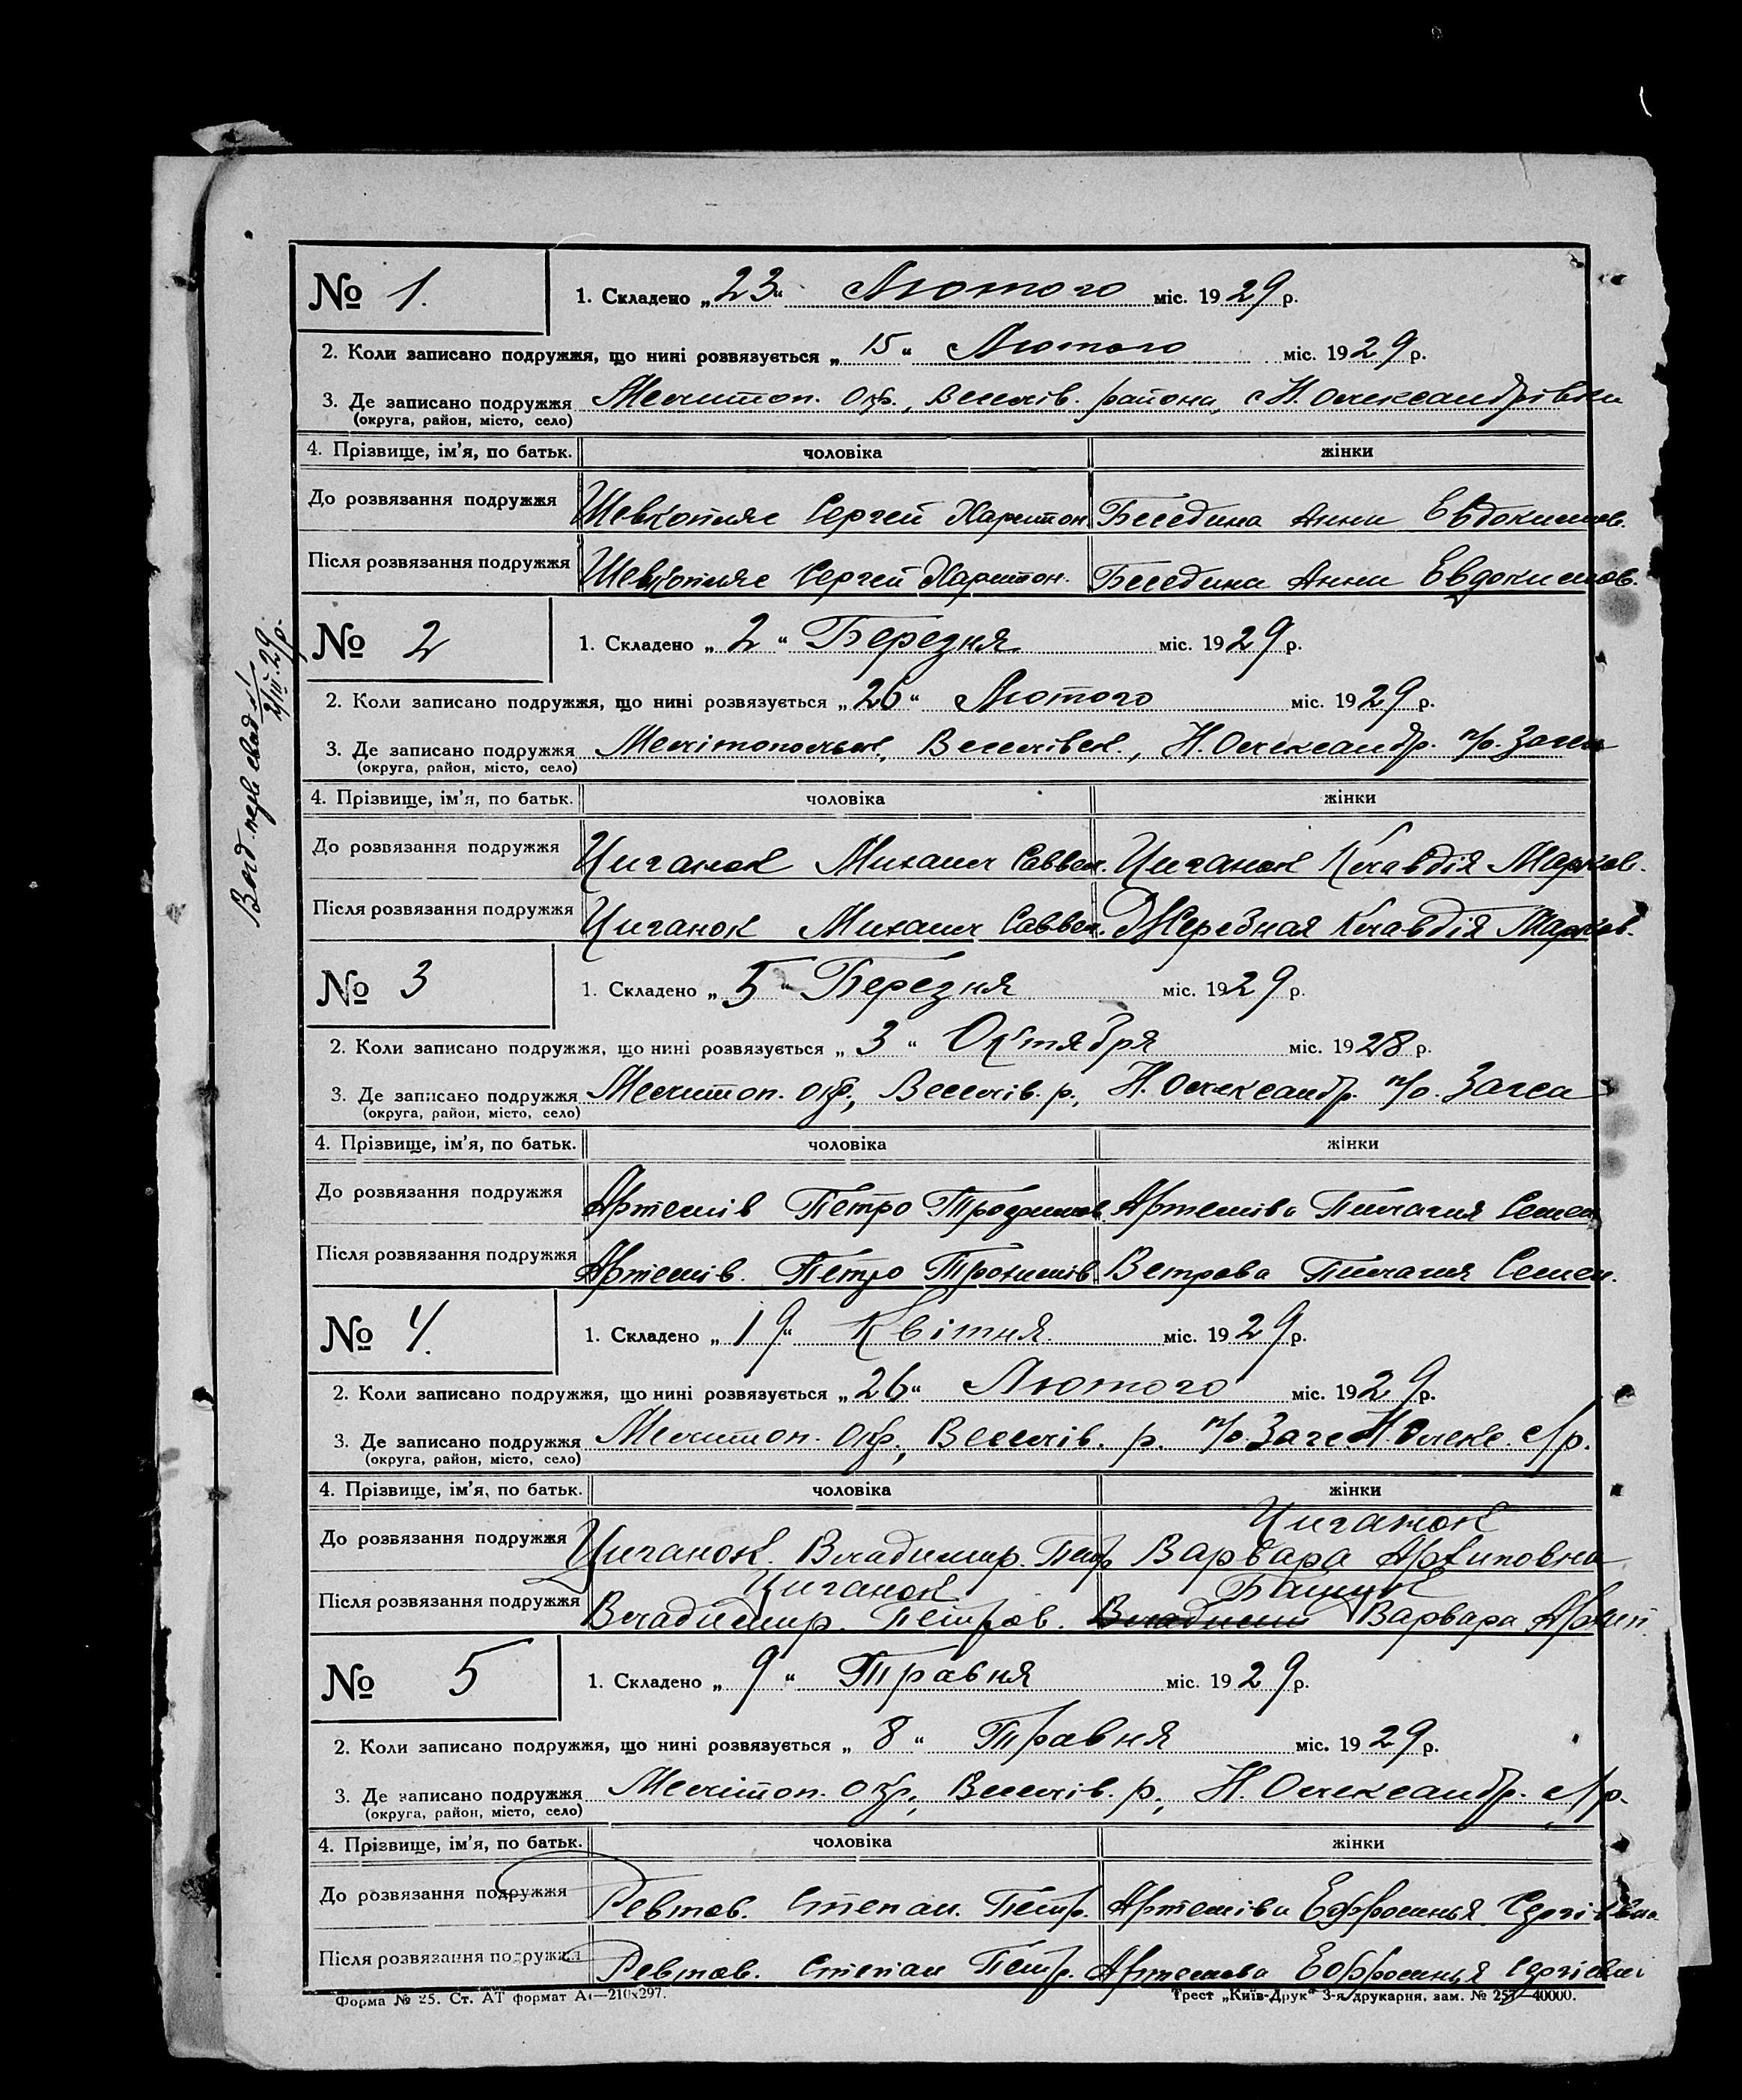 № 1. 1. Складено „23“ Лютого міс. 1929 р.
2. Коли записано подружжя, що нині розвязується „15“ Лютого міс. 1929 р.
3. Де записано подружжя Мелитоп. Окр., Веселів. района, с Н. Олександрівки
(округа, район, місто, село)
4. Прізвище, ім'я, по батьк. чоловіка жінки
До розвязання подружжя Шевкопляс Сергей Харитон Беседина Анна Евдокимов.
Після розвязання подружжя Шевкопляс Сергей Харитон. Беседина Анна Евдокимов.
№ 2 1. Складено „2“ Березня міс. 1929 р.
2. Коли записано подружжя, що нині розвязується „26“ Лютого міс. 1929 р.
3. Де записано подружжя Мелітопольск., Веселівск., Н. Олександр. п/о. Загса
(округа, район, місто, село)
4. Прізвище, ім'я, по батьк. чоловіка жінки
До розвязання подружжя Циганок Михаил Саввен. Циганок Клавдія Марков.
Після розвязання подружжя Циганок Михаил Саввен. Жеребная Клавдія Марков.
2/III-29 р.
№ 3 1. Складено „5“ Березня міс. 1929 р.
2. Коли записано подружжя, що нині розвязується „3“ Октября міс. 1928 р.
3. Де записано подружжя Мелитоп. окр., Веселів. р., Н. Олександр. п/о. Загса
(округа, район, місто, село)
4. Прізвище, ім'я, по батьк. чоловіка жінки
До розвязання подружжя Артемів Петро Артемова Пилагия Семен
Після розвязання подружжя Артемів. Петро Трохимів Ветрова Пилагия Семен.
№ 4. 1. Складено „19“ Квітня. міс. 1929 р.
2. Коли записано подружжя, що нині розвязується „26“ Лютого міс. 1929 р.
3. Де записано подружжя Мелитоп. окр., Веселів. р. п/о. Загс Н. Олекс. с/р.
(округа, район, місто, село)
4. Прізвище, ім'я, по батьк. чоловіка жінки
Циганок
До розвязання подружжя Циганок. Владимир. Петр Варвара Архиповна
Циганок
Після розвязання подружжя Владимир. Петров. Владими Варвара Архип.
№ 5 1. Складено „9“ Травня міс. 1929 р.
2. Коли записано подружжя, що нині розвязується „8“ Травня міс. 1929 р.
3. Де записано подружжя Мелітоп. окр., Веселів. р., Н. Олександр. с/р.
(округа, район, місто, село)
4. Прізвище, ім'я, по батьк. чоловіка жінки
До розвязання подружжя Ревтов. Степан. Петр. Артеміва Ефросинья Сергіівна
Після розвязання подружжя Ревтов. Степан Петр. Артемова Ефросинья Сергіевна
Форма № 25. Ст. АТ формат А4—210х297.
Трест „Київ-Друк“ 3-я друкарня, зам. № 257—40000.